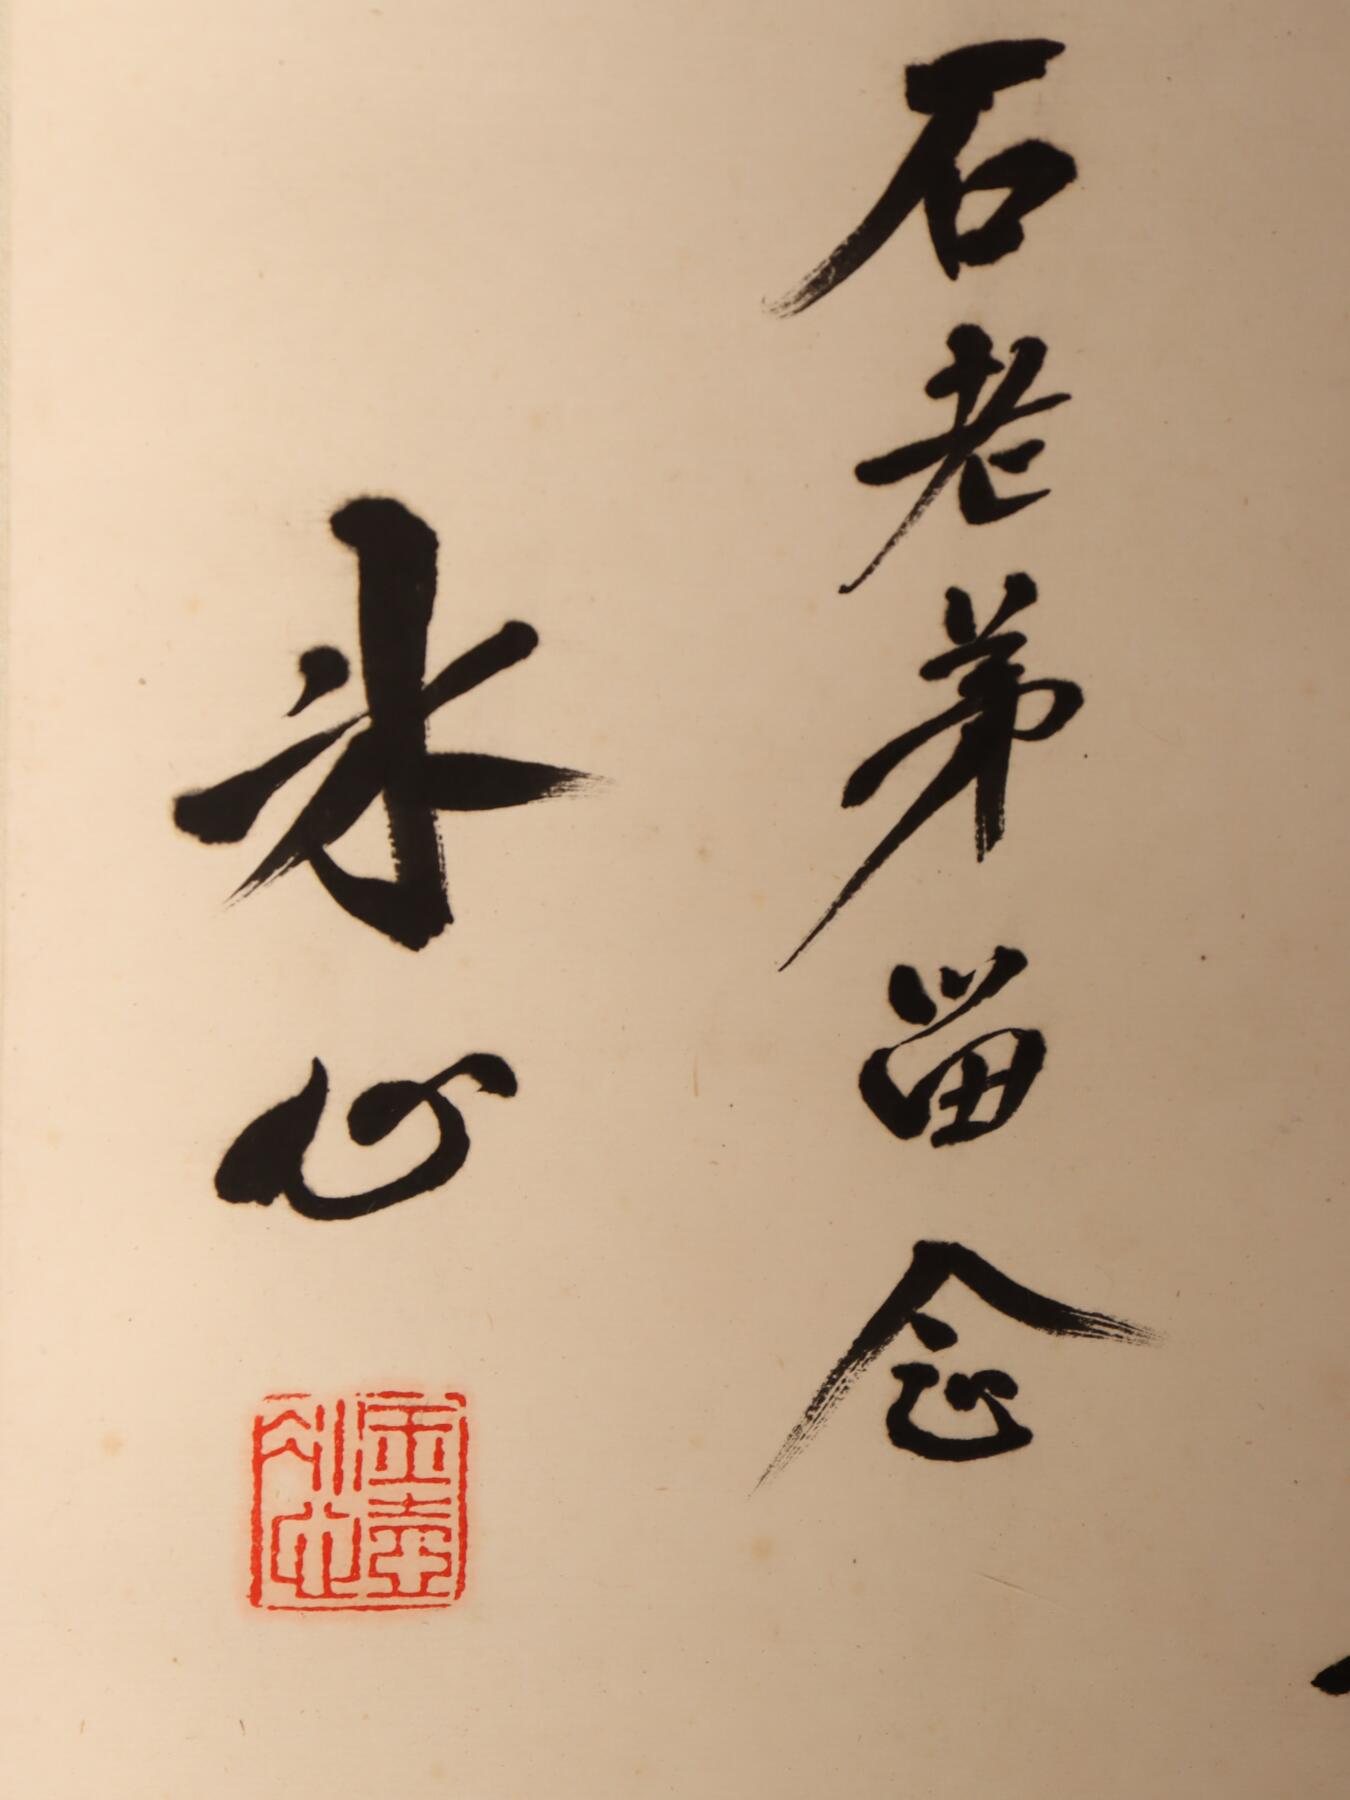 石老弟留念
氷心